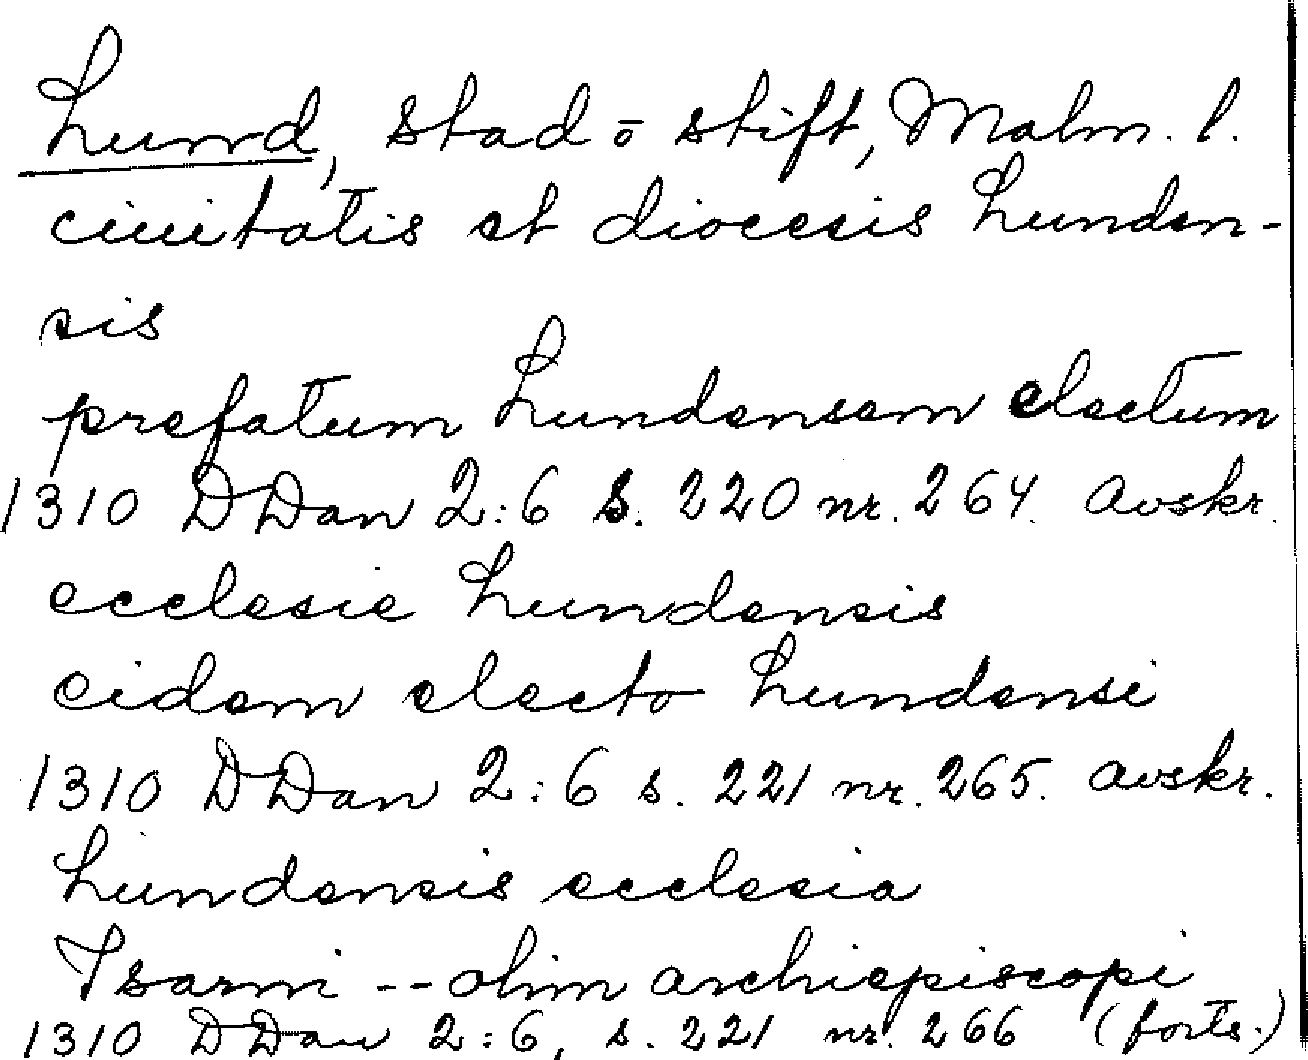 Lund, stad o stift, Malm. l.
ciuitatis et diocesis Lunden-
sis
prefatum Lundensem electum
1310 DDan 2:6 s. 220 nr. 264. Avskr.
ecclesie Lundensis
eidem electo Lundensi
1310 DDan 2:6 s. 221 nr. 265. Avskr.
Lundensis ecclesia
Isarni -- olim archiepiscopi
1310 DDan 2:6, s. 221 nr. 266 (forts.)